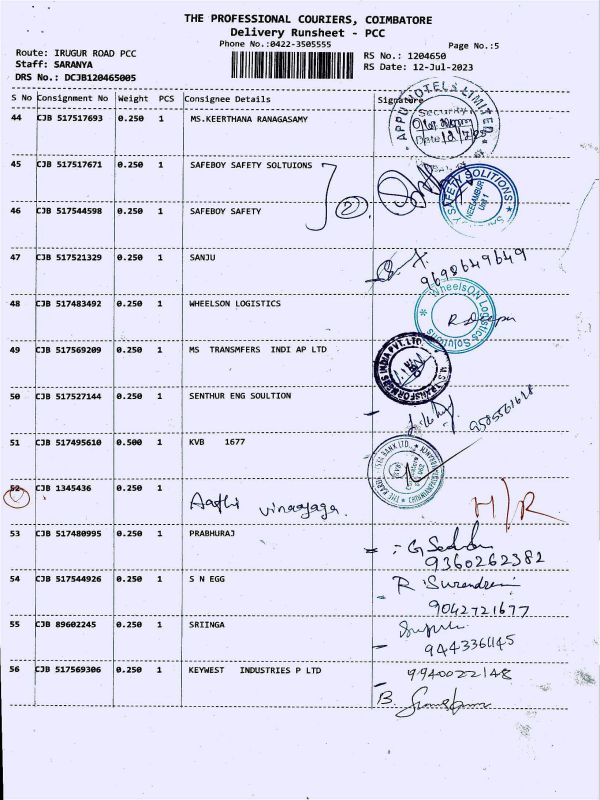 THE PROFESSIONAL COURIERS, COIMBATORE
Delivery Runsheet - PCC
Phone No.:0422-3505555
Page No.:5
Route: IRUGUR ROAD PCC
RS No.: 1204650
Staff: SARANYA
RS Date: 12-Jul-2023
DRS No.: DCJB120465005
S No Consignment No Weight PCS Consignee Details Signature
44 CJB 517517693 0.250 1 MS.KEERTHANA RANAGASAMY
APPU HOTELS LIMITED
Security
45 CJB 517517671 0.250 1 SAFEBOY SAFETY SOLTUIONS
SAFETY SOLITIONS
NEELAMBUR
46 CJB 517544598 0.250 1 SAFEBOY SAFETY
2
47 CJB 517521329 0.250 1 SANJU
9698649649
48 CJB 517483492 0.250 1 WHEELSON LOGISTICS
WheelsON Logistics Solutions
49 CJB 517569209 0.250 1 MS TRANSMFERS INDI AP LTD
M.S. TRANSFORMERS INDIA PVT. LTD.
50 CJB 517527144 0.250 1 SENTHUR ENG SOULTION
51 CJB 517495610 0.500 1 KVB 1677
52 CJB 1345436 0.250 1 Aathi vinaayaga.
H/R
53 CJB 517480995 0.250 1 PRABHURAJ
9360262382
54 CJB 517544926 0.250 1 S N EGG
R. Surendran
9042721677
55 CJB 89602245 0.250 1 SRIINGA
56 CJB 517569306 0.250 1 KEYWEST INDUSTRIES P LTD
9940022148